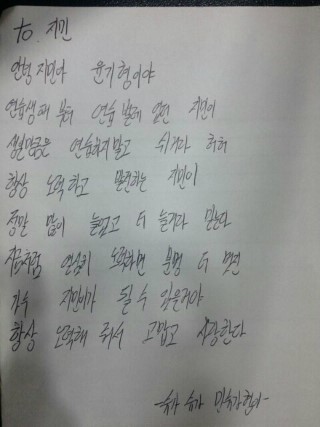 to. 지민
안녕 지민아 윤기형이야
연습생때 부터 연습 벌레 였던 지민이
생일만큼은 연습하지말고 쉬거라 허허
항상 노력하고 발전하는 지민이
정말 많이 늘었고 더 늘거라 믿는다
지금처럼 열심히 노력하면 분명 더 멋진
가수 지민이가 될 수 있을거야
항상 노력해 줘서 고맙고 사랑한다
슈가 슈가